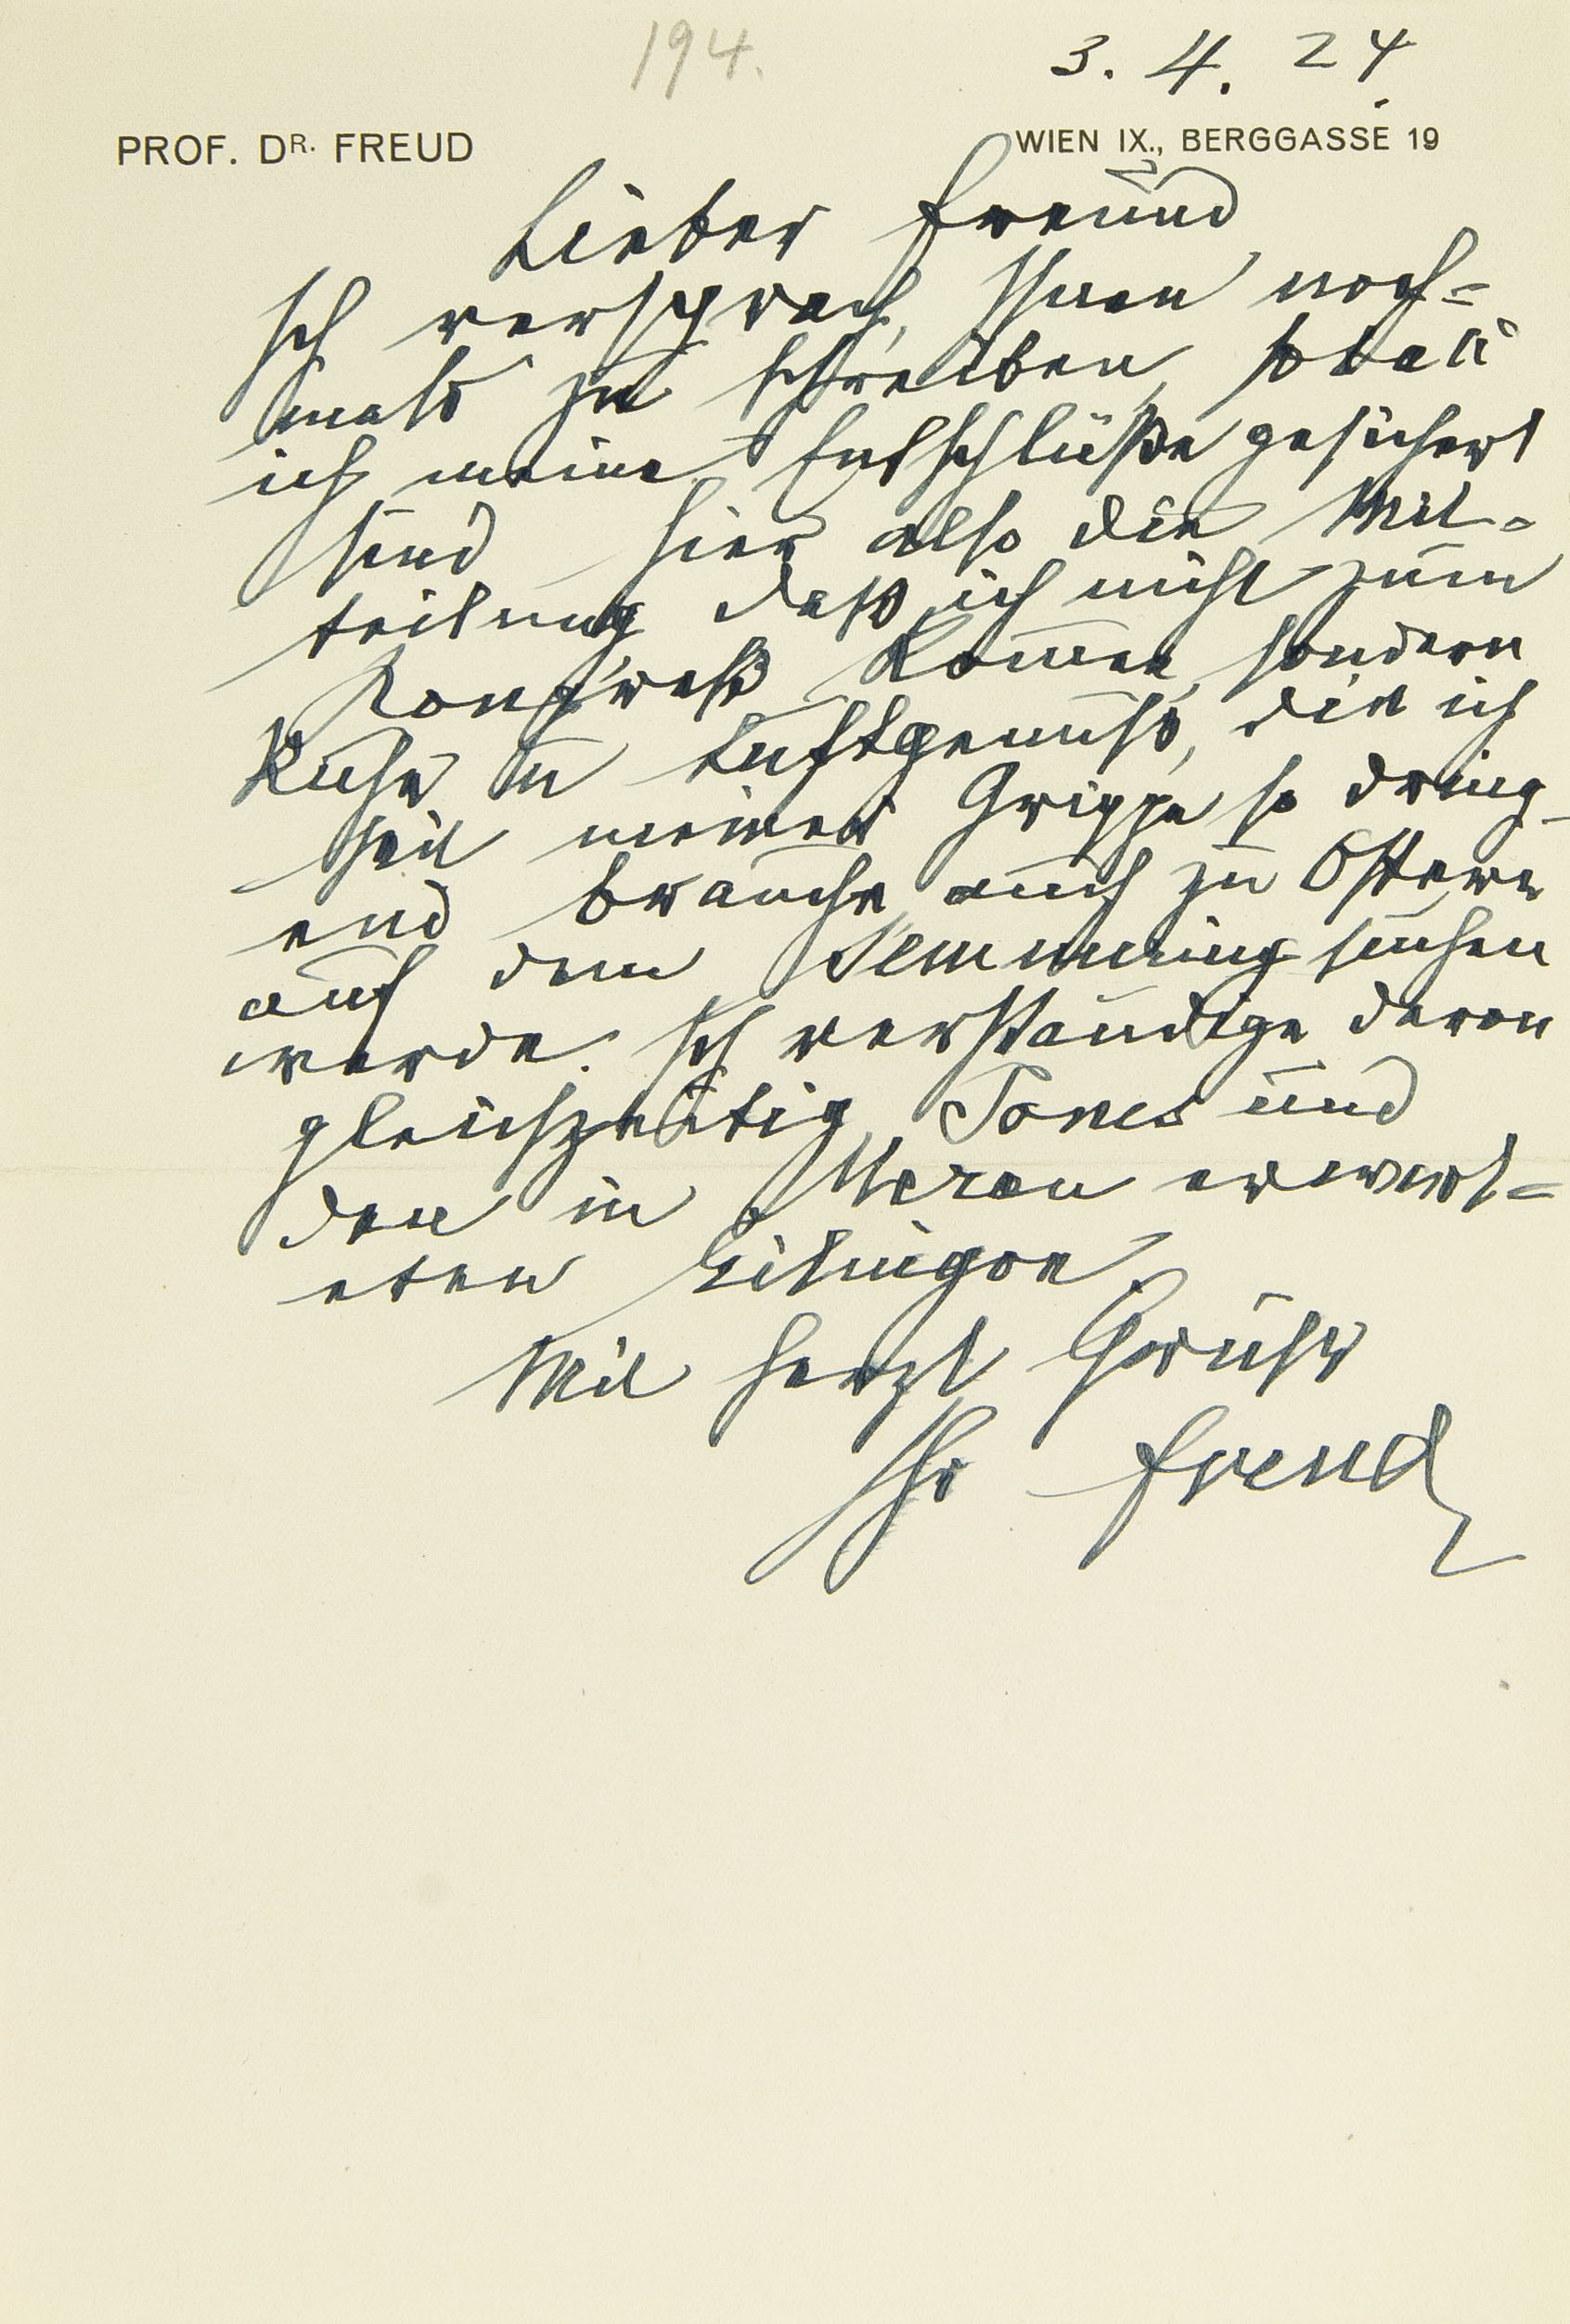 194.
3. 4. 24.
PROF. DR. FREUD
WIEN IX., BERGGASSE 19
Lieber Freund
Ich versprach, Ihnen noch=
mals zu schreiben, sobald
ich meine Entschlüße gesichert
sind hier also die Mit-
teilung daß ich nicht zum
Kongreß komme, sondern
Ruhe u Luftgenuß, die ich
seit meiner Grippe so dring-
end brauche, auch zu Ostern
auf dem Semmering suchen
werde. Ich verständige davon
gleichzeitig Jones und
den in Meran erwart=
eten Eitingon.
Mit herzl Gruß
Ihr Freud